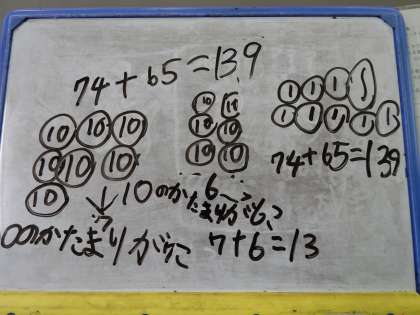 74+65=139
10 10 10
10 10 10
10
10 10
10 10
10 10
1 1 1 1
1 1 1 1 1
74+65=139
10のかたまりが7こ
10のかたまりが6こ
7+6=13